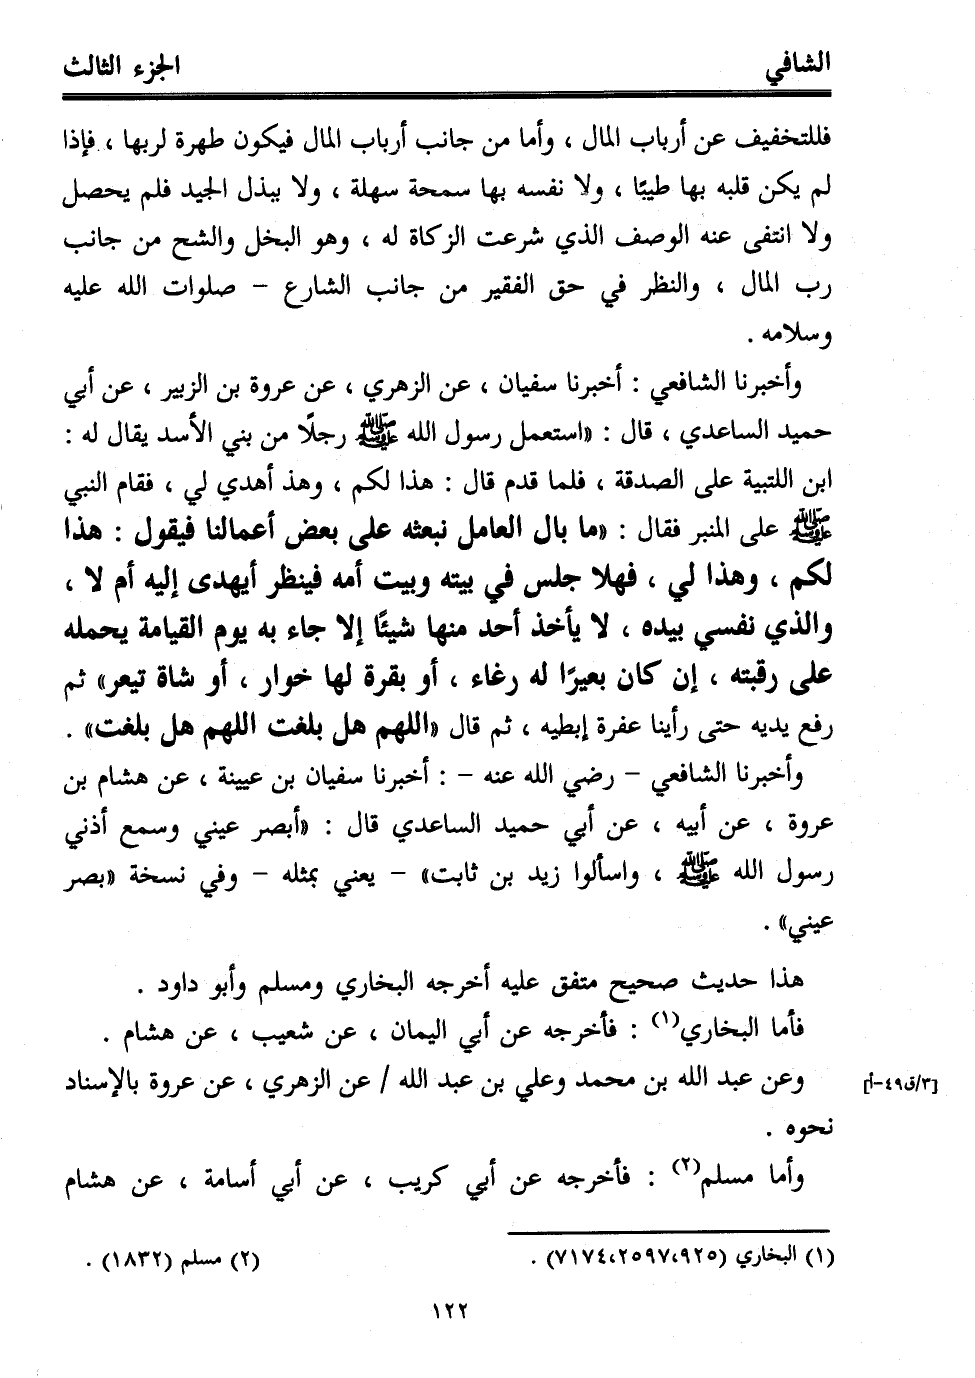 الشافي
الجزء الثالث
فللتخفيف عن أرباب المال ، وأما من جانب أرباب المال فيكون طهرة لربها ، فإذا
لم يكن قلبه بها طيبًا ، ولا نفسه بها سمحة سهلة ، ولا ببذل الجيد فلم يحصل
ولا انتفى عنه الوصف الذي شرعت الزكاة له ، وهو البخل والشح من جانب
رب المال ، والنظر في حق الفقير من جانب الشارع – صلوات الله عليه
وسلامه .
وأخبرنا الشافعي : أخبرنا سفيان ، عن الزهري ، عن عروة بن الزبير ، عن أبي
حميد الساعدي ، قال : «استعمل رسول الله ﷺ رجلًا من بني الأسد يقال له :
ابن اللتبية على الصدقة ، فلما قدم قال : هذا لكم ، وهذ أهدي لي ، فقام النبي
ﷺ على المنبر فقال : «ما بال العامل نبعثه على بعض أعمالنا فيقول : هذا
لكم ، وهذا لي ، فهلا جلس في بيته وبيت أمه فينظر أيهدى إليه أم لا ،
والذي نفسي بيده ، لا يأخذ أحد منها شيئًا إلا جاء به يوم القيامة يحمله
على رقبته ، إن كان بعيرًا له رغاء ، أو بقرة لها خوار ، أو شاة تيعر» ثم
رفع يديه حتى رأينا عفرة إبطيه ، ثم قال «اللهم هل بلغت اللهم هل بلغت» .
وأخبرنا الشافعي – رضي الله عنه – : أخبرنا سفيان بن عيينة ، عن هشام بن
عروة ، عن أبيه ، عن أبي حميد الساعدي قال : «أبصر عيني وسمع أذني
رسول الله ﷺ ، واسألوا زيد بن ثابت» – يعني بمثله – وفي نسخة «بصر
عيني» .
هذا حديث صحيح متفق عليه أخرجه البخاري ومسلم وأبو داود .
فأما البخاري(١) : فأخرجه عن أبي اليمان ، عن شعيب ، عن هشام .
وعن عبد الله بن محمد وعلي بن عبد الله / عن الزهري ، عن عروة بالإسناد
[٣/ق٤٩-أ]
نحوه .
وأما مسلم(٢) : فأخرجه عن أبي كريب ، عن أبي أسامة ، عن هشام
(١) البخاري (٩٢٥،٢٥٩٧،٧١٧٤) .
(٢) مسلم (١٨٣٢) .
١٢٢